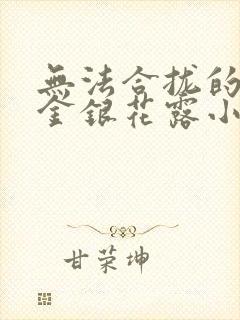 無法合拢的
金銀花露小
甘荣坤